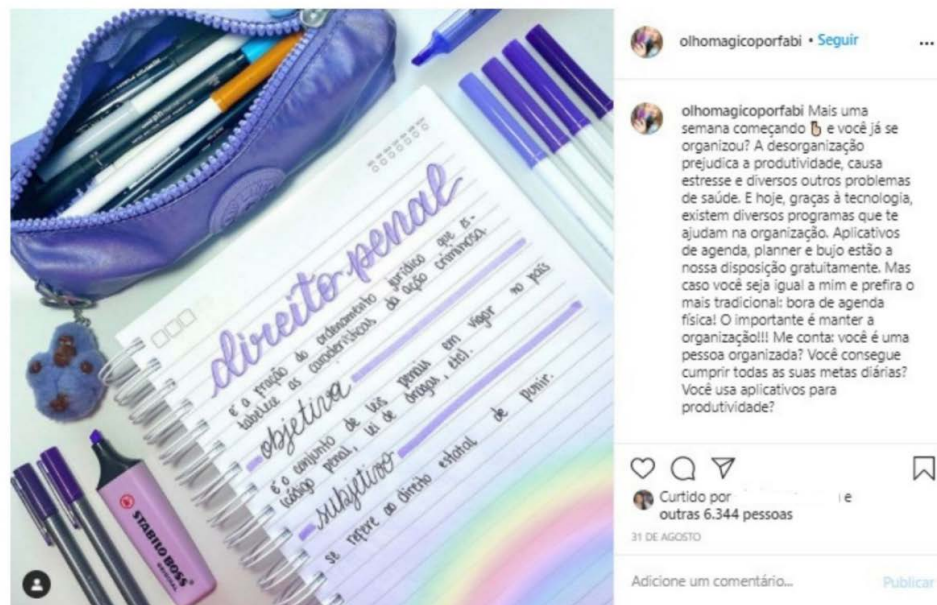 direito penal
é a fração do ordenamento jurídico que es-
tabelece as características da ação criminosa.
objetiva
é o conjunto de leis penais em vigor no país
(código penal, lei de drogas, etc).
subjetivo
se refere ao direito estatal de punir.
STABILO BOSS
ORIGINAL
olhomagicoporfabi • Seguir
olhomagicoporfabi Mais uma
semana começando e você já se
organizou? A desorganização
prejudica a produtividade, causa
estresse e diversos outros problemas
de saúde. E hoje, graças à tecnologia,
existem diversos programas que te
ajudam na organização. Aplicativos
de agenda, planner e bujo estão a
nossa disposição gratuitamente. Mas
caso você seja igual a mim e prefira o
mais tradicional: bora de agenda
física! O importante é manter a
organização!!! Me conta: você é uma
pessoa organizada? Você consegue
cumprir todas as suas metas diárias?
Você usa aplicativos para
produtividade?
Curtido por e
outras 6.344 pessoas
31 DE AGOSTO
Adicione um comentário...
Publicar